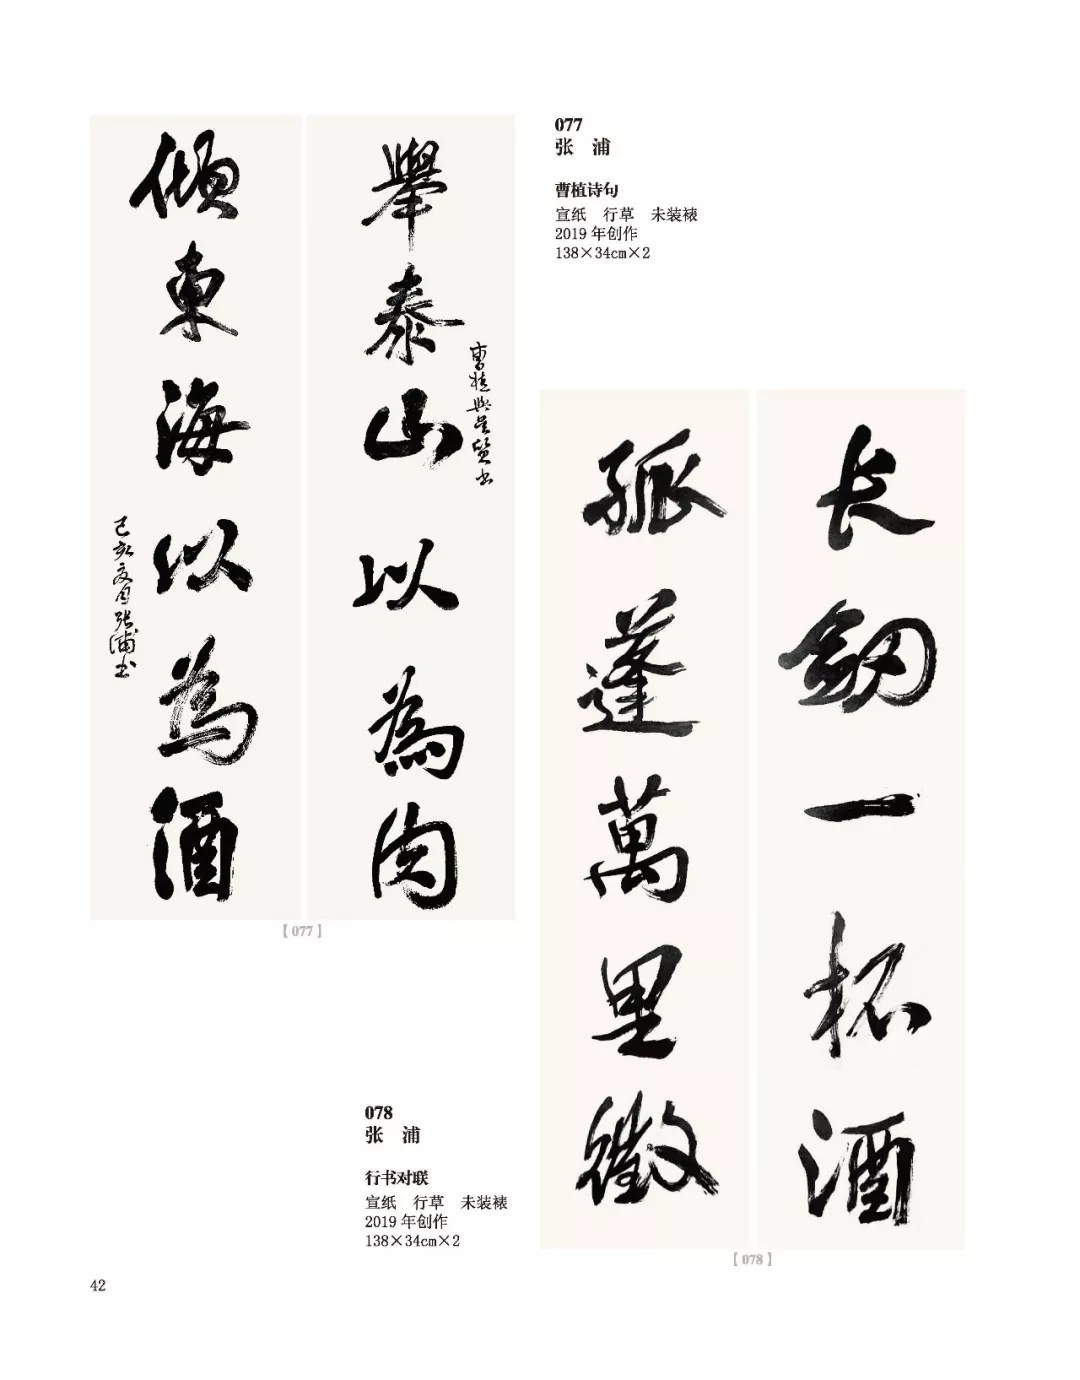 077
张 浦
曹植诗句
宣纸 行草 未装裱
2019年创作
138×34cm×2
舉泰山以為肉
曹植與吴質书
傾東海以為酒
己亥夏月张浦书
【077】
长劒一杯酒
孤蓬萬里徵
【078】
078
张 浦
行书对联
宣纸 行草 未装裱
2019年创作
138×34cm×2
42